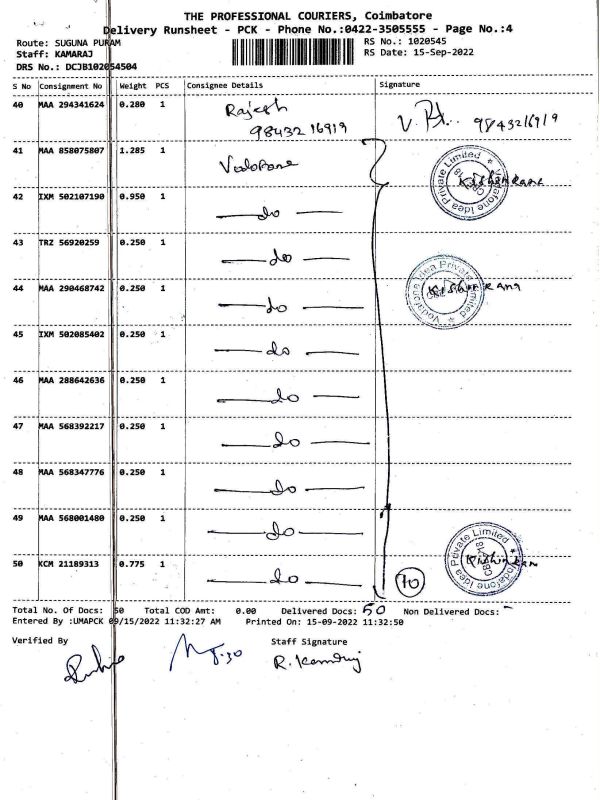 THE PROFESSIONAL COURIERS, Coimbatore
Delivery Runsheet - PCK - Phone No.:0422-3505555 - Page No.:4
Route: SUGUNA PURAM
RS No.: 1020545
Staff: KAMARAJ
RS Date: 15-Sep-2022
DRS No.: DCJB102054504
S No Consignment No Weight PCS Consignee Details Signature
40 MAA 294341624 0.280 1 Rajesh
9843216919 9843216919
41 MAA 858075807 1.285 1 Vodofone
Vodafone Idea Private Limited *
42 IXM 502107190 0.950 1 — do —
43 TRZ 56920259 0.250 1 — do —
Vodafone Idea Private Limited *
44 MAA 290468742 0.250 1 — do —
45 IXM 502085402 0.250 1 — do —
46 MAA 288642636 0.250 1 — do —
47 MAA 568392217 0.250 1 — do —
48 MAA 568347776 0.250 1 — do —
49 MAA 568001480 0.250 1 — do —
Vodafone Idea Private Limited *
50 KCM 21189313 0.775 1 — do — 10
Total No. Of Docs: 50 Total COD Amt: 0.00 Delivered Docs: 50 Non Delivered Docs: -
Entered By :UMAPCK 09/15/2022 11:32:27 AM Printed On: 15-09-2022 11:32:50
Verified By Staff Signature
R. Kamaraj